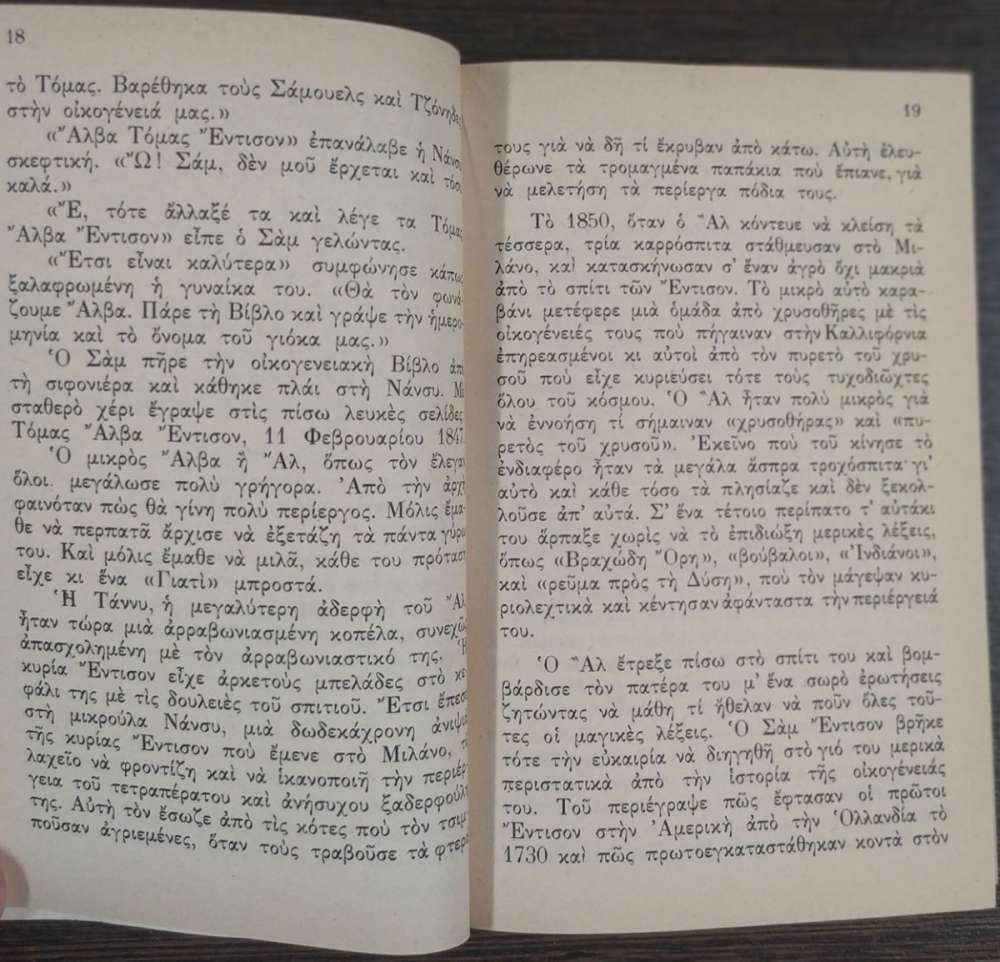 18
τὸ Τόμας. Βαρέθηκα τοὺς Σάμουελς καὶ Τζόνηδες
στὴν οἰκογένειά μας.»
«Ἄλβα Τόμας Ἔντισον» ἐπανάλαβε ἡ Νάνσυ
σκεφτική. «Ὤ! Σάμ, δὲν μοῦ ἔρχεται καὶ τόσο
καλά.»
«Ἔ, τότε ἄλλαξέ τα καὶ λέγε τα Τόμας
Ἄλβα Ἔντισον» εἶπε ὁ Σὰμ γελώντας.
«Ἔτσι εἶναι καλύτερα» συμφώνησε κάπως
ξαλαφρωμένη ἡ γυναίκα του. «Θὰ τὸν φωνά-
ζουμε Ἄλβα. Πάρε τὴ Βίβλο καὶ γράψε τὴν ἡμερο-
μηνία καὶ τὸ ὄνομα τοῦ γιόκα μας.»
Ὁ Σὰμ πῆρε τὴν οἰκογενειακὴ Βίβλο ἀπὸ
τὴ σιφονιέρα καὶ κάθηκε πλάι στὴ Νάνσυ. Μὲ
σταθερὸ χέρι ἔγραψε στὶς πίσω λευκὲς σελίδες
Τόμας Ἄλβα Ἔντισον, 11 Φεβρουαρίου 1847.
Ὁ μικρὸς Ἄλβα ἢ Ἄλ, ὅπως τὸν ἔλεγαν
ὅλοι. μεγάλωσε πολὺ γρήγορα. Ἀπὸ τὴν ἀρχὴ
φαινόταν πὼς θὰ γίνη πολὺ περίεργος. Μόλις ἔμα-
θε νὰ περπατᾶ ἄρχισε νὰ ἐξετάζη τὰ πάντα γύρω
του. Καὶ μόλις ἔμαθε νὰ μιλᾶ, κάθε του πρόταση
εἶχε κι ἕνα «Γιατὶ» μπροστά.
Ἡ Τάννυ, ἡ μεγαλύτερη ἀδερφὴ τοῦ Ἄλ,
ἦταν τώρα μιὰ ἀρραβωνιασμένη κοπέλα, συνεχῶς
ἀπασχολημένη μὲ τὸν ἀρραβωνιαστικό της. Ἡ
κυρία Ἔντισον εἶχε ἀρκετοὺς μπελάδες στὸ κε-
φάλι της μὲ τὶς δουλειὲς τοῦ σπιτιοῦ. Ἔτσι ἔπεσε
στὴ μικρούλα Νάνσυ, μιὰ δωδεκάχρονη ἀνιψιὰ
τῆς κυρίας Ἔντισον ποὺ ἔμενε στὸ Μιλάνο, τὸ
λαχεῖο νὰ φροντίζη καὶ νὰ ἱκανοποιῆ τὴν περιέρ-
γεια τοῦ τετραπέρατου καὶ ἀνήσυχου ξαδερφούλη
της. Αὐτὴ τὸν ἔσωζε ἀπὸ τὶς κότες ποὺ τὸν τσιμ-
ποῦσαν ἀγριεμένες, ὅταν τοὺς τραβοῦσε τὰ φτερά
19
τους γιὰ νὰ δῆ τί ἔκρυβαν ἀπὸ κάτω. Αὐτὴ ἐλευ-
θέρωνε τὰ τρομαγμένα παπάκια ποὺ ἔπιανε, γιὰ
νὰ μελετήση τὰ περίεργα πόδια τους.
Τὸ 1850, ὅταν ὁ Ἂλ κόντευε νὰ κλείση τὰ
τέσσερα, τρία καρρόσπιτα στάθμευσαν στὸ Μι-
λάνο, καὶ κατασκήνωσαν σ' ἕναν ἀγρὸ ὄχι μακριὰ
ἀπὸ τὸ σπίτι τῶν Ἔντισον. Τὸ μικρὸ αὐτὸ καρα-
βάνι μετέφερε μιὰ ὁμάδα ἀπὸ χρυσοθῆρες μὲ τὶς
οἰκογένειές τους ποὺ πήγαιναν στὴν Καλλιφόρνια
ἐπηρεασμένοι κι αὐτοὶ ἀπὸ τὸν πυρετὸ τοῦ χρυ-
σοῦ ποὺ εἶχε κυριεύσει τότε τοὺς τυχοδιῶχτες
ὅλου τοῦ κόσμου. Ὁ Ἂλ ἦταν πολὺ μικρὸς γιὰ
νὰ ἐννοήση τί σήμαιναν «χρυσοθήρας» καὶ «πυ-
ρετὸς τοῦ χρυσοῦ». Ἐκεῖνο ποὺ τοῦ κίνησε τὸ
ἐνδιαφέρο ἦταν τὰ μεγάλα ἄσπρα τροχόσπιτα· γι'
αὐτὸ καὶ κάθε τόσο τὰ πλησίαζε καὶ δὲν ξεκολ-
λοῦσε ἀπ' αὐτά. Σ' ἕνα τέτοιο περίπατο τ' αὐτάκι
του ἅρπαξε χωρὶς νὰ τὸ ἐπιδιώξη μερικὲς λέξεις,
ὅπως «Βραχώδη Ὄρη», «βούβαλοι», «Ἰνδιάνοι»,
καὶ «ρεῦμα πρὸς τὴ Δύση», ποὺ τὸν μάγεψαν κυ-
ριολεχτικὰ καὶ κέντησαν ἀφάνταστα τὴν περιέργειά
του.
Ὁ Ἂλ ἔτρεξε πίσω στὸ σπίτι του καὶ βομ-
βάρδισε τὸν πατέρα του μ' ἕνα σωρὸ ἐρωτήσεις
ζητώντας νὰ μάθη τί ἤθελαν νὰ ποῦν ὅλες τοῦ-
τες οἱ μαγικὲς λέξεις. Ὁ Σὰμ Ἔντισον βρῆκε
τότε τὴν εὐκαιρία νὰ διηγηθῆ στὸ γιό του μερικὰ
περιστατικὰ ἀπὸ τὴν ἱστορία τῆς οἰκογένειάς
του. Τοῦ περιέγραψε πῶς ἔφτασαν οἱ πρῶτοι
Ἔντισον στὴν Ἀμερικὴ ἀπὸ τὴν Ὁλλανδία τὸ
1730 καὶ πῶς πρωτοεγκαταστάθηκαν κοντὰ στὸν